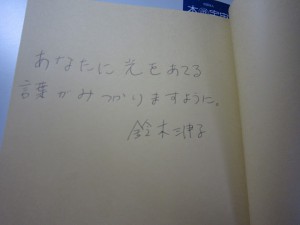 本気
あなたに光をあてる
言葉がみつかりますように。
鈴木